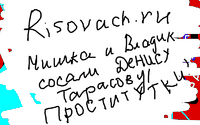 Risovach.ru
Мишка и Владик
сосали Денису
Тарасову!
Проститутки